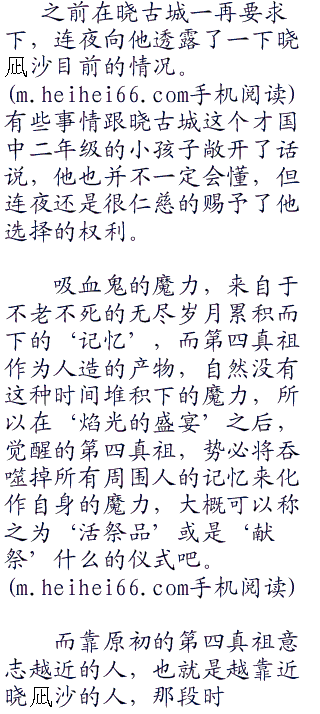 之前在晓古城一再要求
下，连夜向他透露了一下晓
凪沙目前的情况。
(m.heihei66.com手机阅读)
有些事情跟晓古城这个才国
中二年级的小孩子敞开了话
说，他也并不一定会懂，但
连夜还是很仁慈的赐予了他
选择的权利。
吸血鬼的魔力，来自于
不老不死的无尽岁月累积而
下的‘记忆’，而第四真祖
作为人造的产物，自然没有
这种时间堆积下的魔力，所
以在‘焰光的盛宴’之后，
觉醒的第四真祖，势必将吞
噬掉所有周围人的记忆来化
作自身的魔力，大概可以称
之为‘活祭品’或是‘献
祭’什么的仪式吧。
(m.heihei66.com手机阅读)
而靠原初的第四真祖意
志越近的人，也就是越靠近
晓凪沙的人，那段时